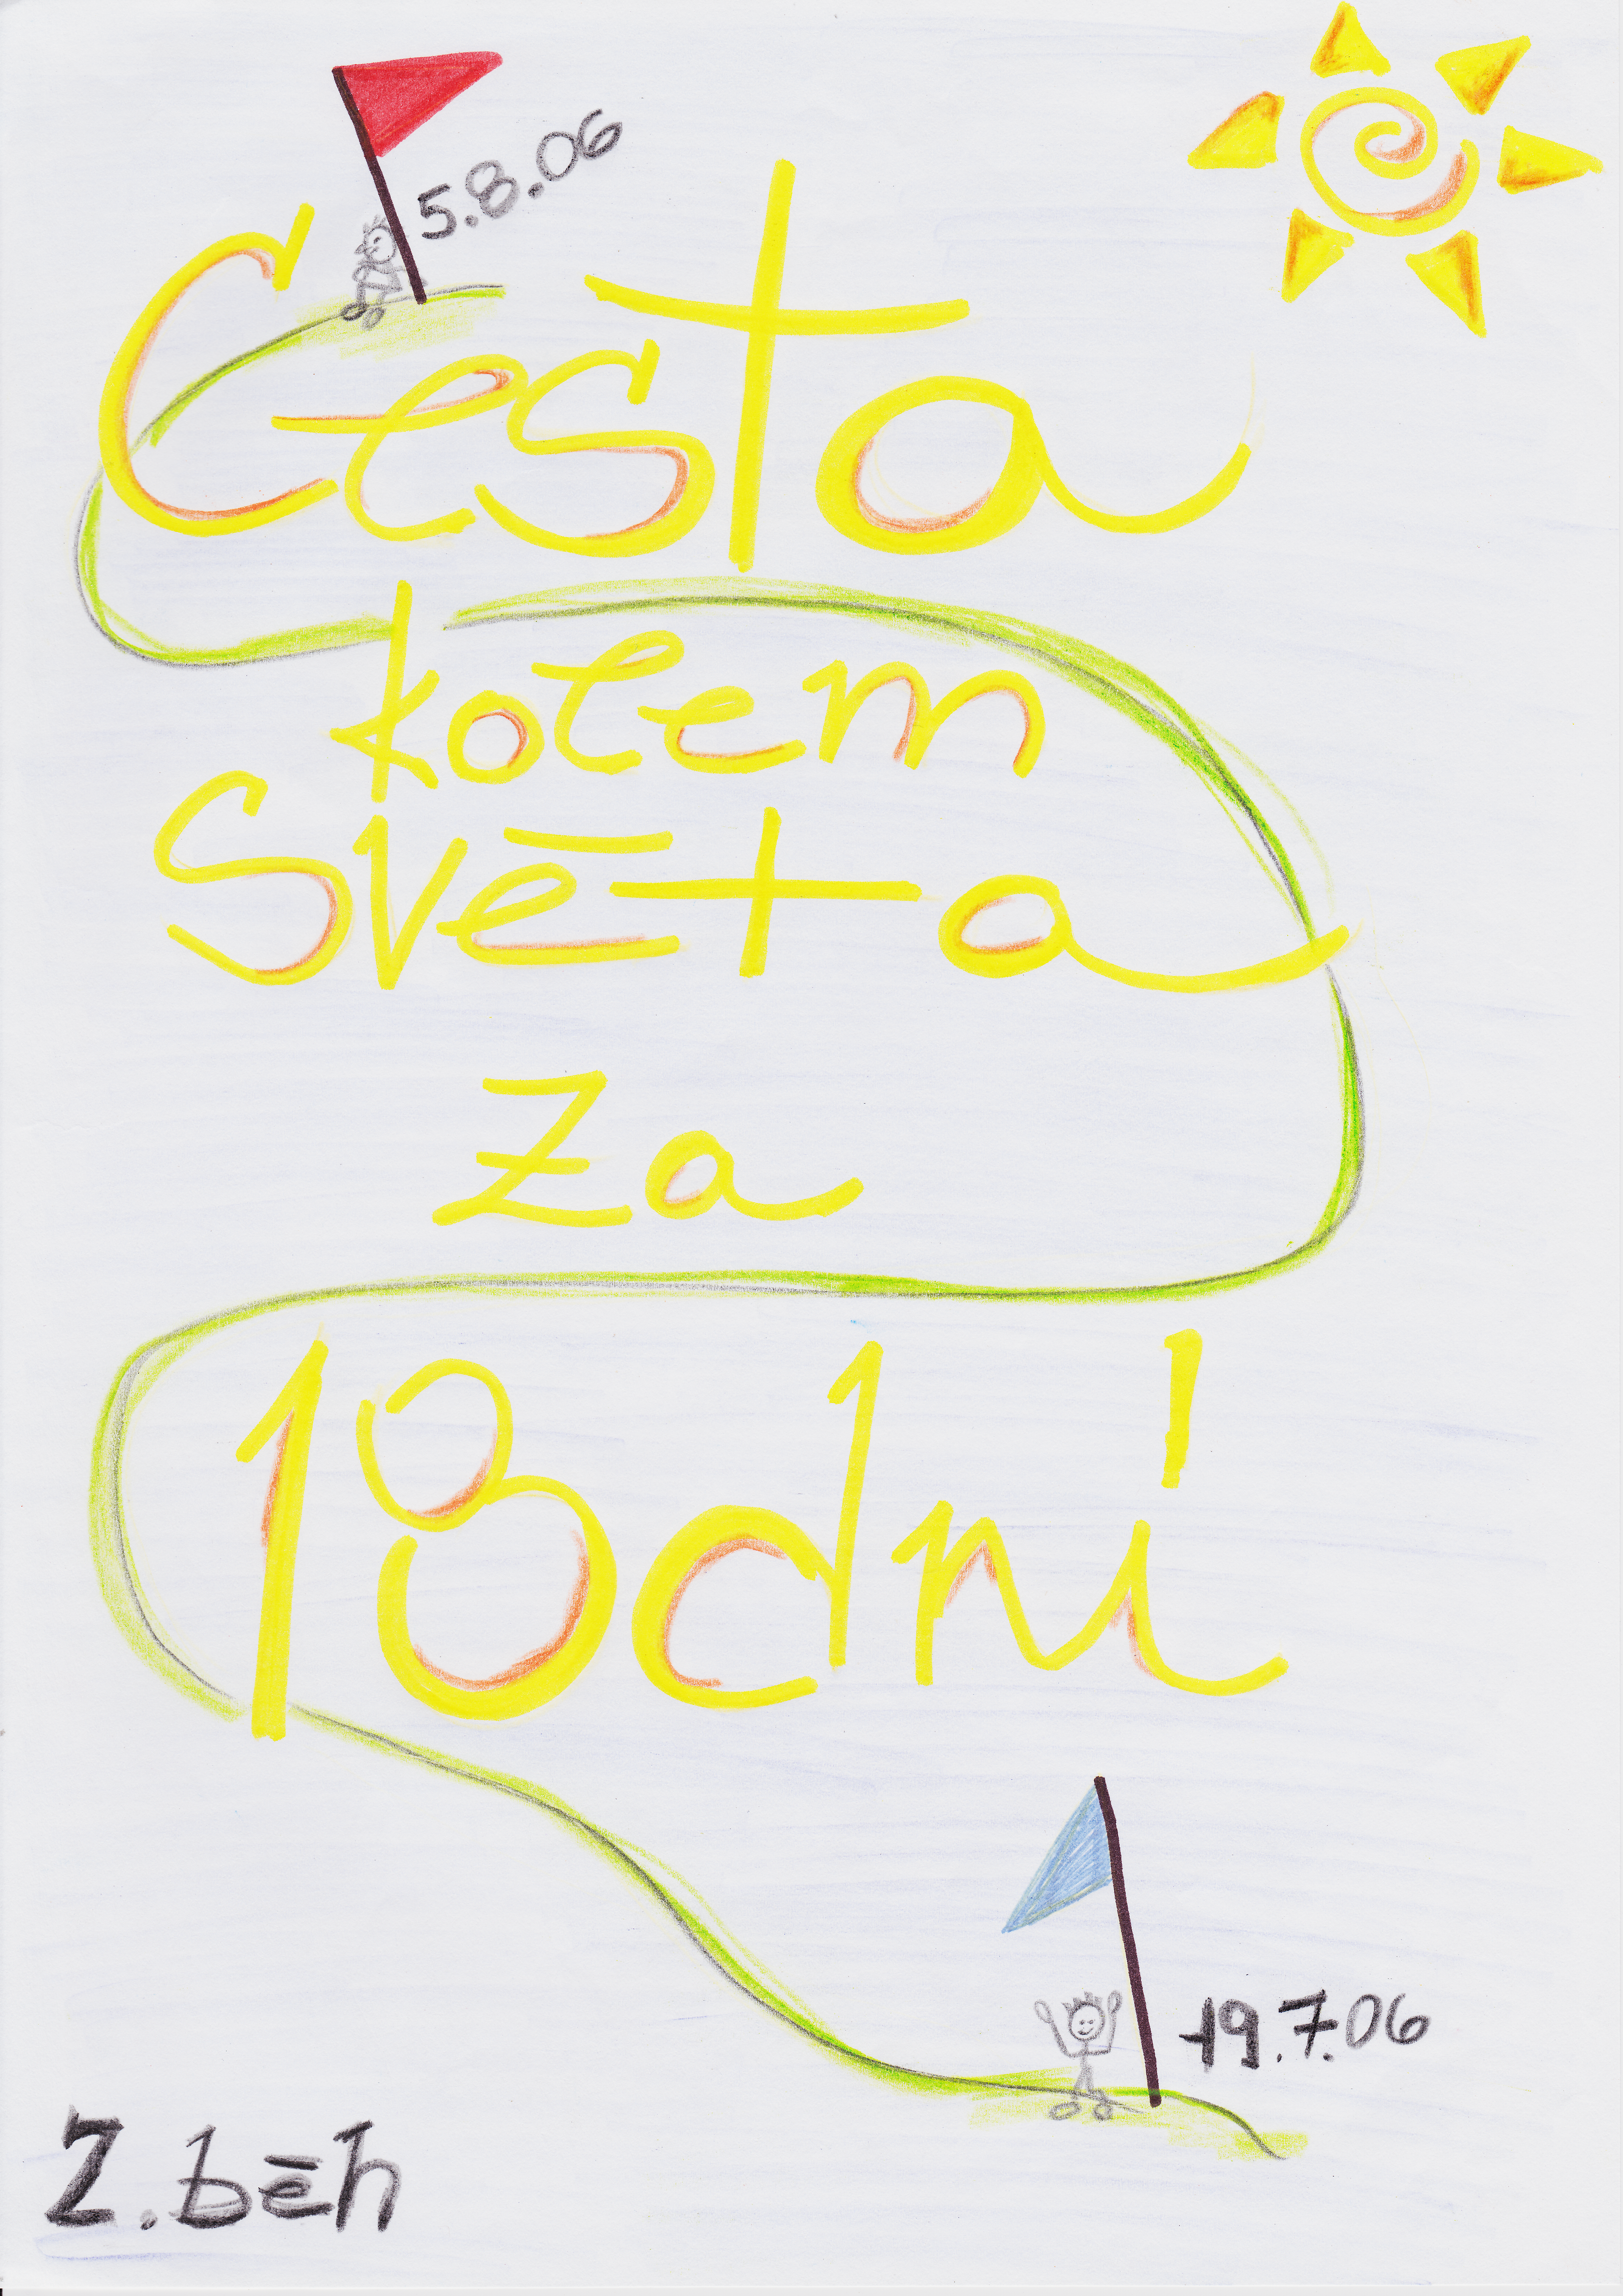 5.8.06
Cesta
kolem
Světa
za
18 dní
19.7.06
2. běh